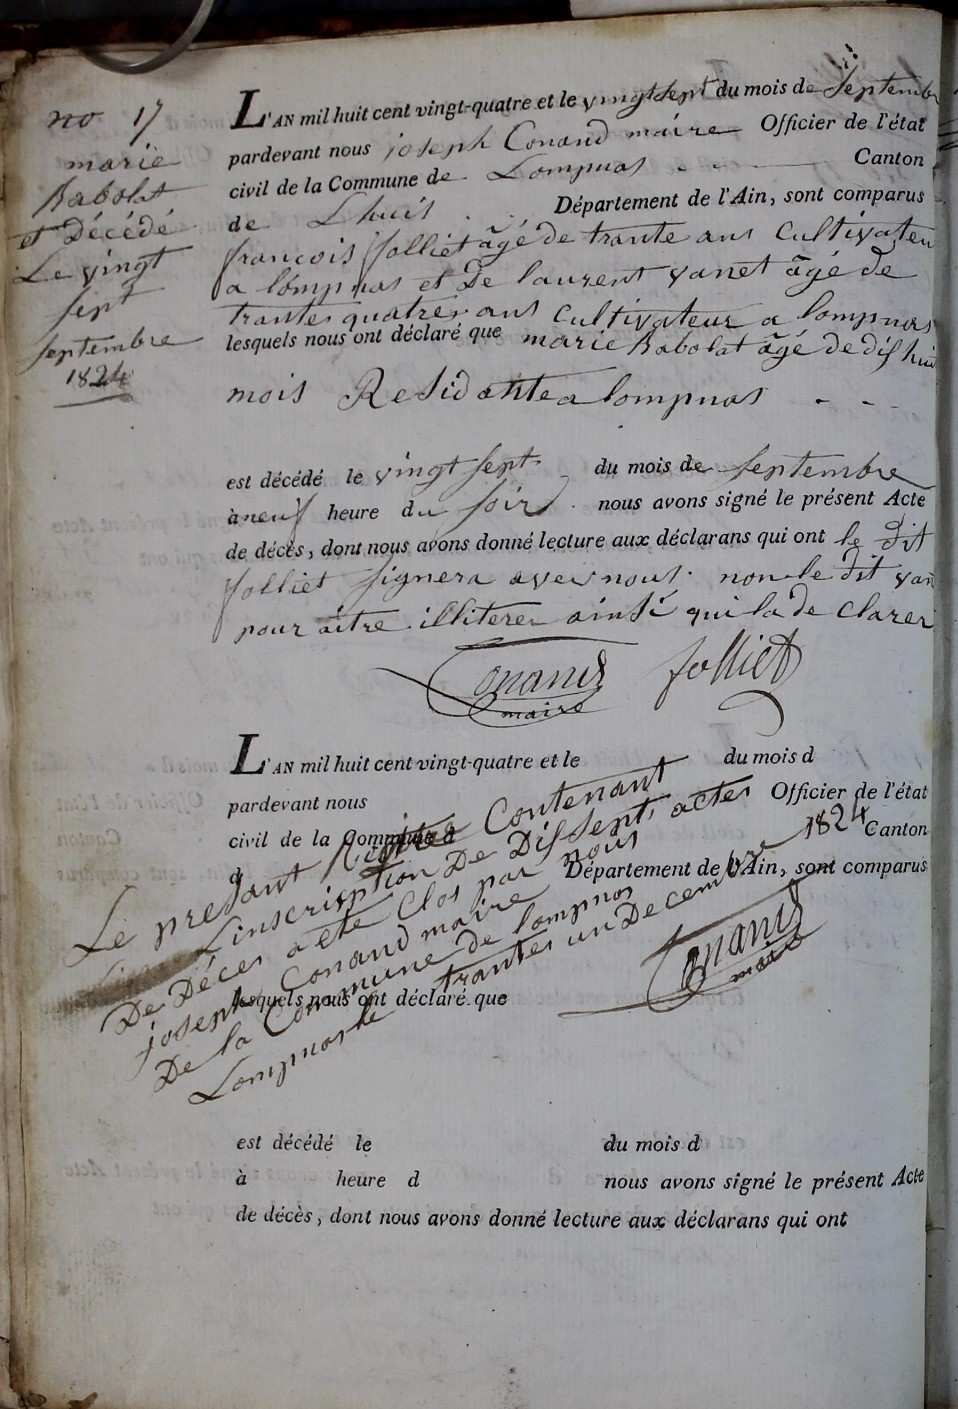 no 17
marie
Rabolat
et Décédé
Le vingt
sept
septembre
1824
L'AN mil huit cent vingt-quatre et le vingt sept du mois de septembre
pardevant nous joseph Conand maire Officier de l'état
civil de la Commune de Lompnas Canton
de Lhuis Département de l'Ain, sont comparus
francois Jolliet âgé de trante ans Cultivateu
a lompnas et De laurent vanet âgé de
trantes quatres ans Cultivateur a lompnas
lesquels nous ont déclaré que marie Rabolat âgé de dis huit
mois Residante a lompnas
est décédé le vingt sept du mois de septembre
à neuf heure du soir nous avons signé le présent Acte
de décès, dont nous avons donné lecture aux déclarans qui ont le dit
Jolliet signera avec nous non le dit van
pour aitre illiterer ainsi qui la de clarer
Conand Jolliet
maire
L'AN mil huit cent vingt-quatre et le du mois d
pardevant nous Officier de l'état
civil de la Commune d Canton
d Département de l'Ain, sont comparus
lesquels nous ont déclaré que
Le presant Registre Contenant
L'inscription De Dissept actes
De Déces a eté Clos par nous
joseph Conand maire
De la Commune de lompnas
Lompnas le trantes un Decembre 1824
Conand
maire
est décédé le du mois d
à heure d nous avons signé le présent Acte
de décès, dont nous avons donné lecture aux déclarans qui ont